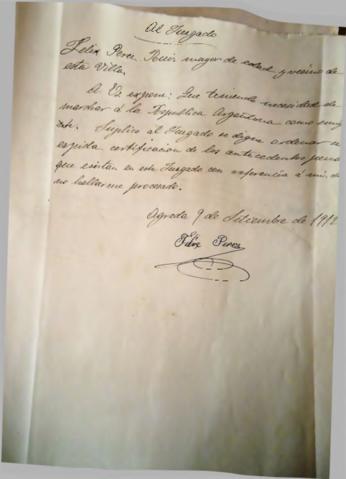 Al Juzgado
Felix Perez Ruiz mayor de edad y vecino de
esta Villa.
A Vs expone: Que teniendo necesidad de
marchar á la República Argentina como emigr
ante. Suplico al Juzgado se digne ordenar se
expida certificación de los antecedentes pena
que existan en este Juzgado con referencia á mi, de
no hallarme procesado.
Agreda 9 de Setiembre de 1912
Felix Perez